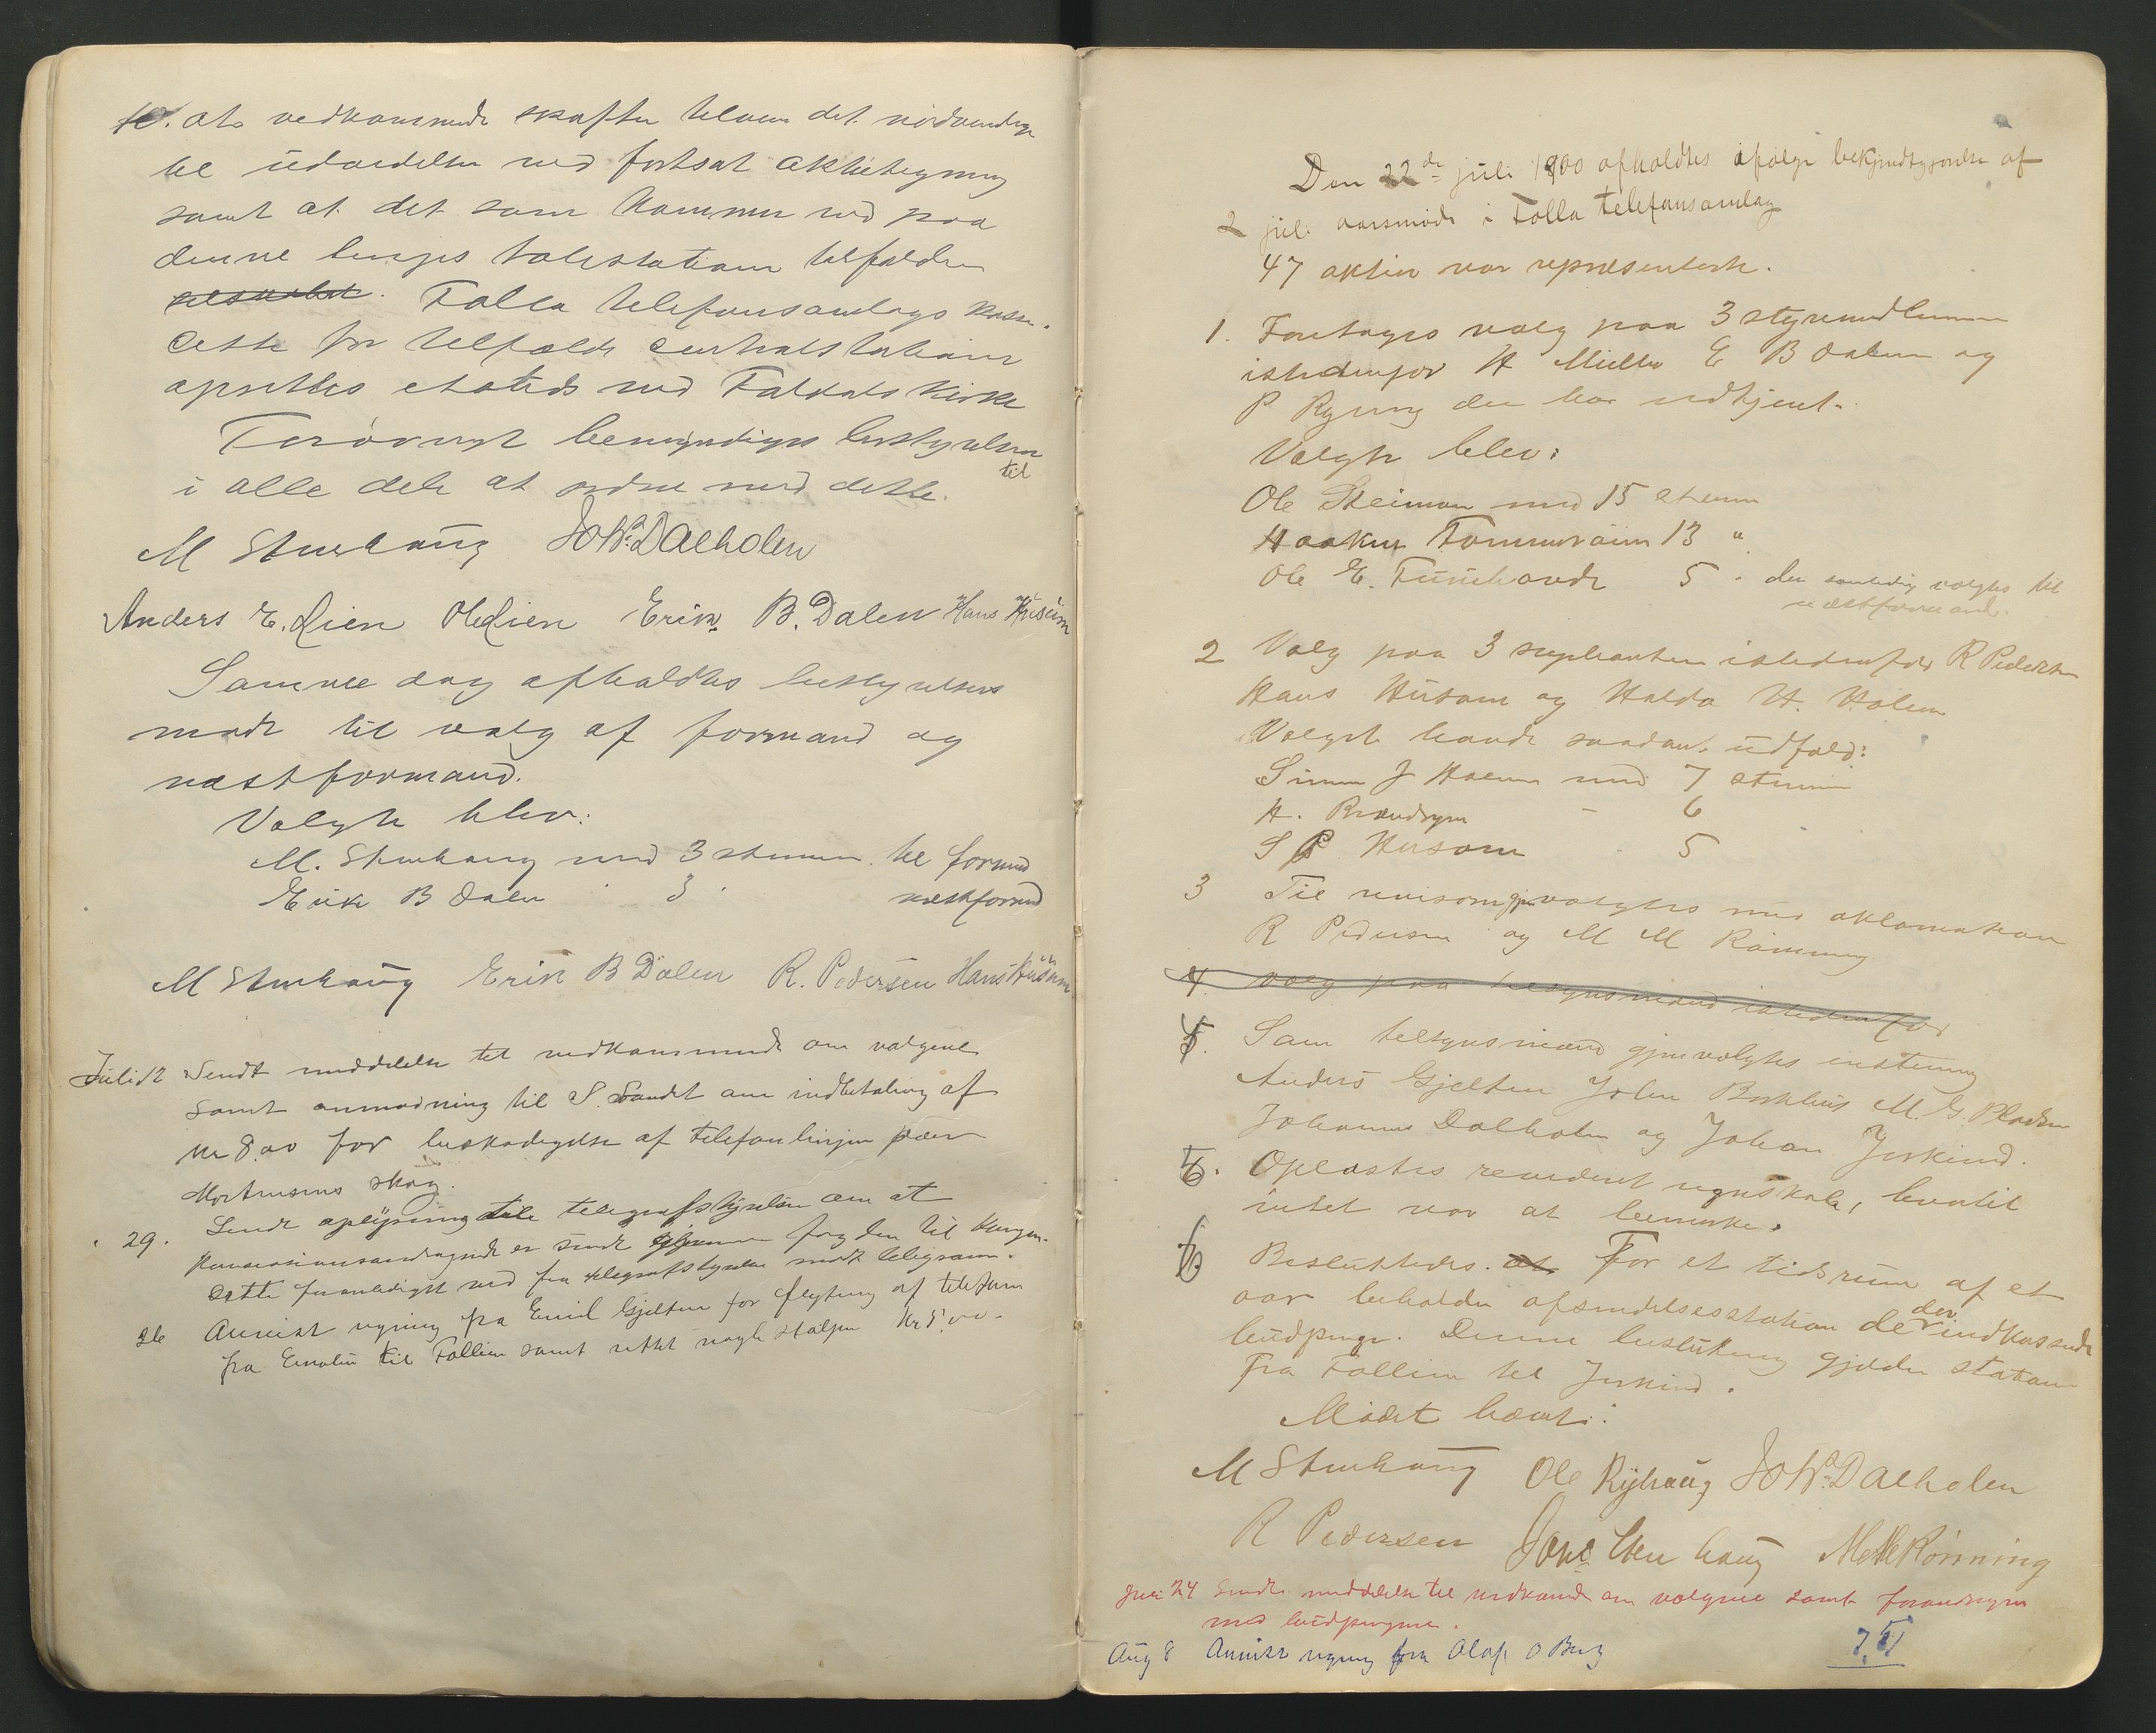 at vedkommende skaffer tilveie det nødvendige
til udvidelse ved fortsat aktietegning
samt at det som kommer ind paa
denne linjes talestation tilfalder
Folla telefonsamlags kasse.
Dette for tilfælde centralstation
oprettes etsteds ved Foldals kirke
Forøvrigt bemyndiges bestyrelsen til
i alle dele at ordne med dette.
M Streitlien JohS Dalholen
Anders E. Lien Ole Lien Erik B. Dalen Hans Husum
Samme dag afholdtes bestyrelses
møde til valg af formand og
næstformand.
Valgte blev:
M. med 3 stemmer til formand
Erik B Dalen " 3 " næstformand
M Erik B Dalen R. Pedersen Hans Husum
Juli 12 Sendt meddelelse til vedkommende om valgene
samt anmodning til S. Sandet om indbetaling af
kr 8.00 for beskadigelse af telefonlinjen over
Mortensens skog.
29. Sendt oplysning til telegrafstyrelsen om at
koncessionsandragende er sendt fogden til Kongsv.
Dette foranlediget ved fra telegrafstyrelsen modt. telegram.
Anvist regning fra Emil Gjelten for flytning af telefon
fra til Follien samt rettet nogle stolper kr 5.00.
Den 22de juli 1900 afholdtes ifølge bekjendtgjørelse af
2 juli aarsmøde i Folla telefonsamlag
47 aktier var repræsenterte.
1. Foretoges valg paa 3 styremedlemmer
istedenfor H Müller E B Dalen og
P Ryeng der har udtjent.
Valgte blev:
Ole Steimoen med 15 stemmer
Haaken 13 "
Ole E. 5 " der samtidig valgtes til
næstformand.
2 Valg paa 3 supleanter istedenfor R Pedersen
Hans Husom og Haldo H. Holen
Valget havde saadant udfald:
Simen J Holen med 7 stemmer
H. - 6
S P Husom - 5
3 Til revisorer gjenvalgtes med aklamation
R Pedersen og M M Rønning
4. Valg paa tilsynsmænd istedenfor
Som tilsynsmænd gjenvalgtes enstemmig
Anders Gjelten John Borkhus M. G. Pladsen
Johannes Dalholen og Johan Jerkind.
Oplæstes revideret regnskab, hvortil
intet var at bemærke.
Besluttedes. For et tidsrum af et
aar beholder afsendelsesstationen de der indkasserede
budpenge. Denne beslutning gjælder stationer
fra Follien til Jerkind.
Mødet hævet:
M Ole Ryhaug JohS Dalholen
R Pedersen MMRønning
Juli 24 Sendt meddelelse til vedkomende om valgene samt forandringen
med budpengene.
Aug 8 Anvist regning fra Olaf O Berg